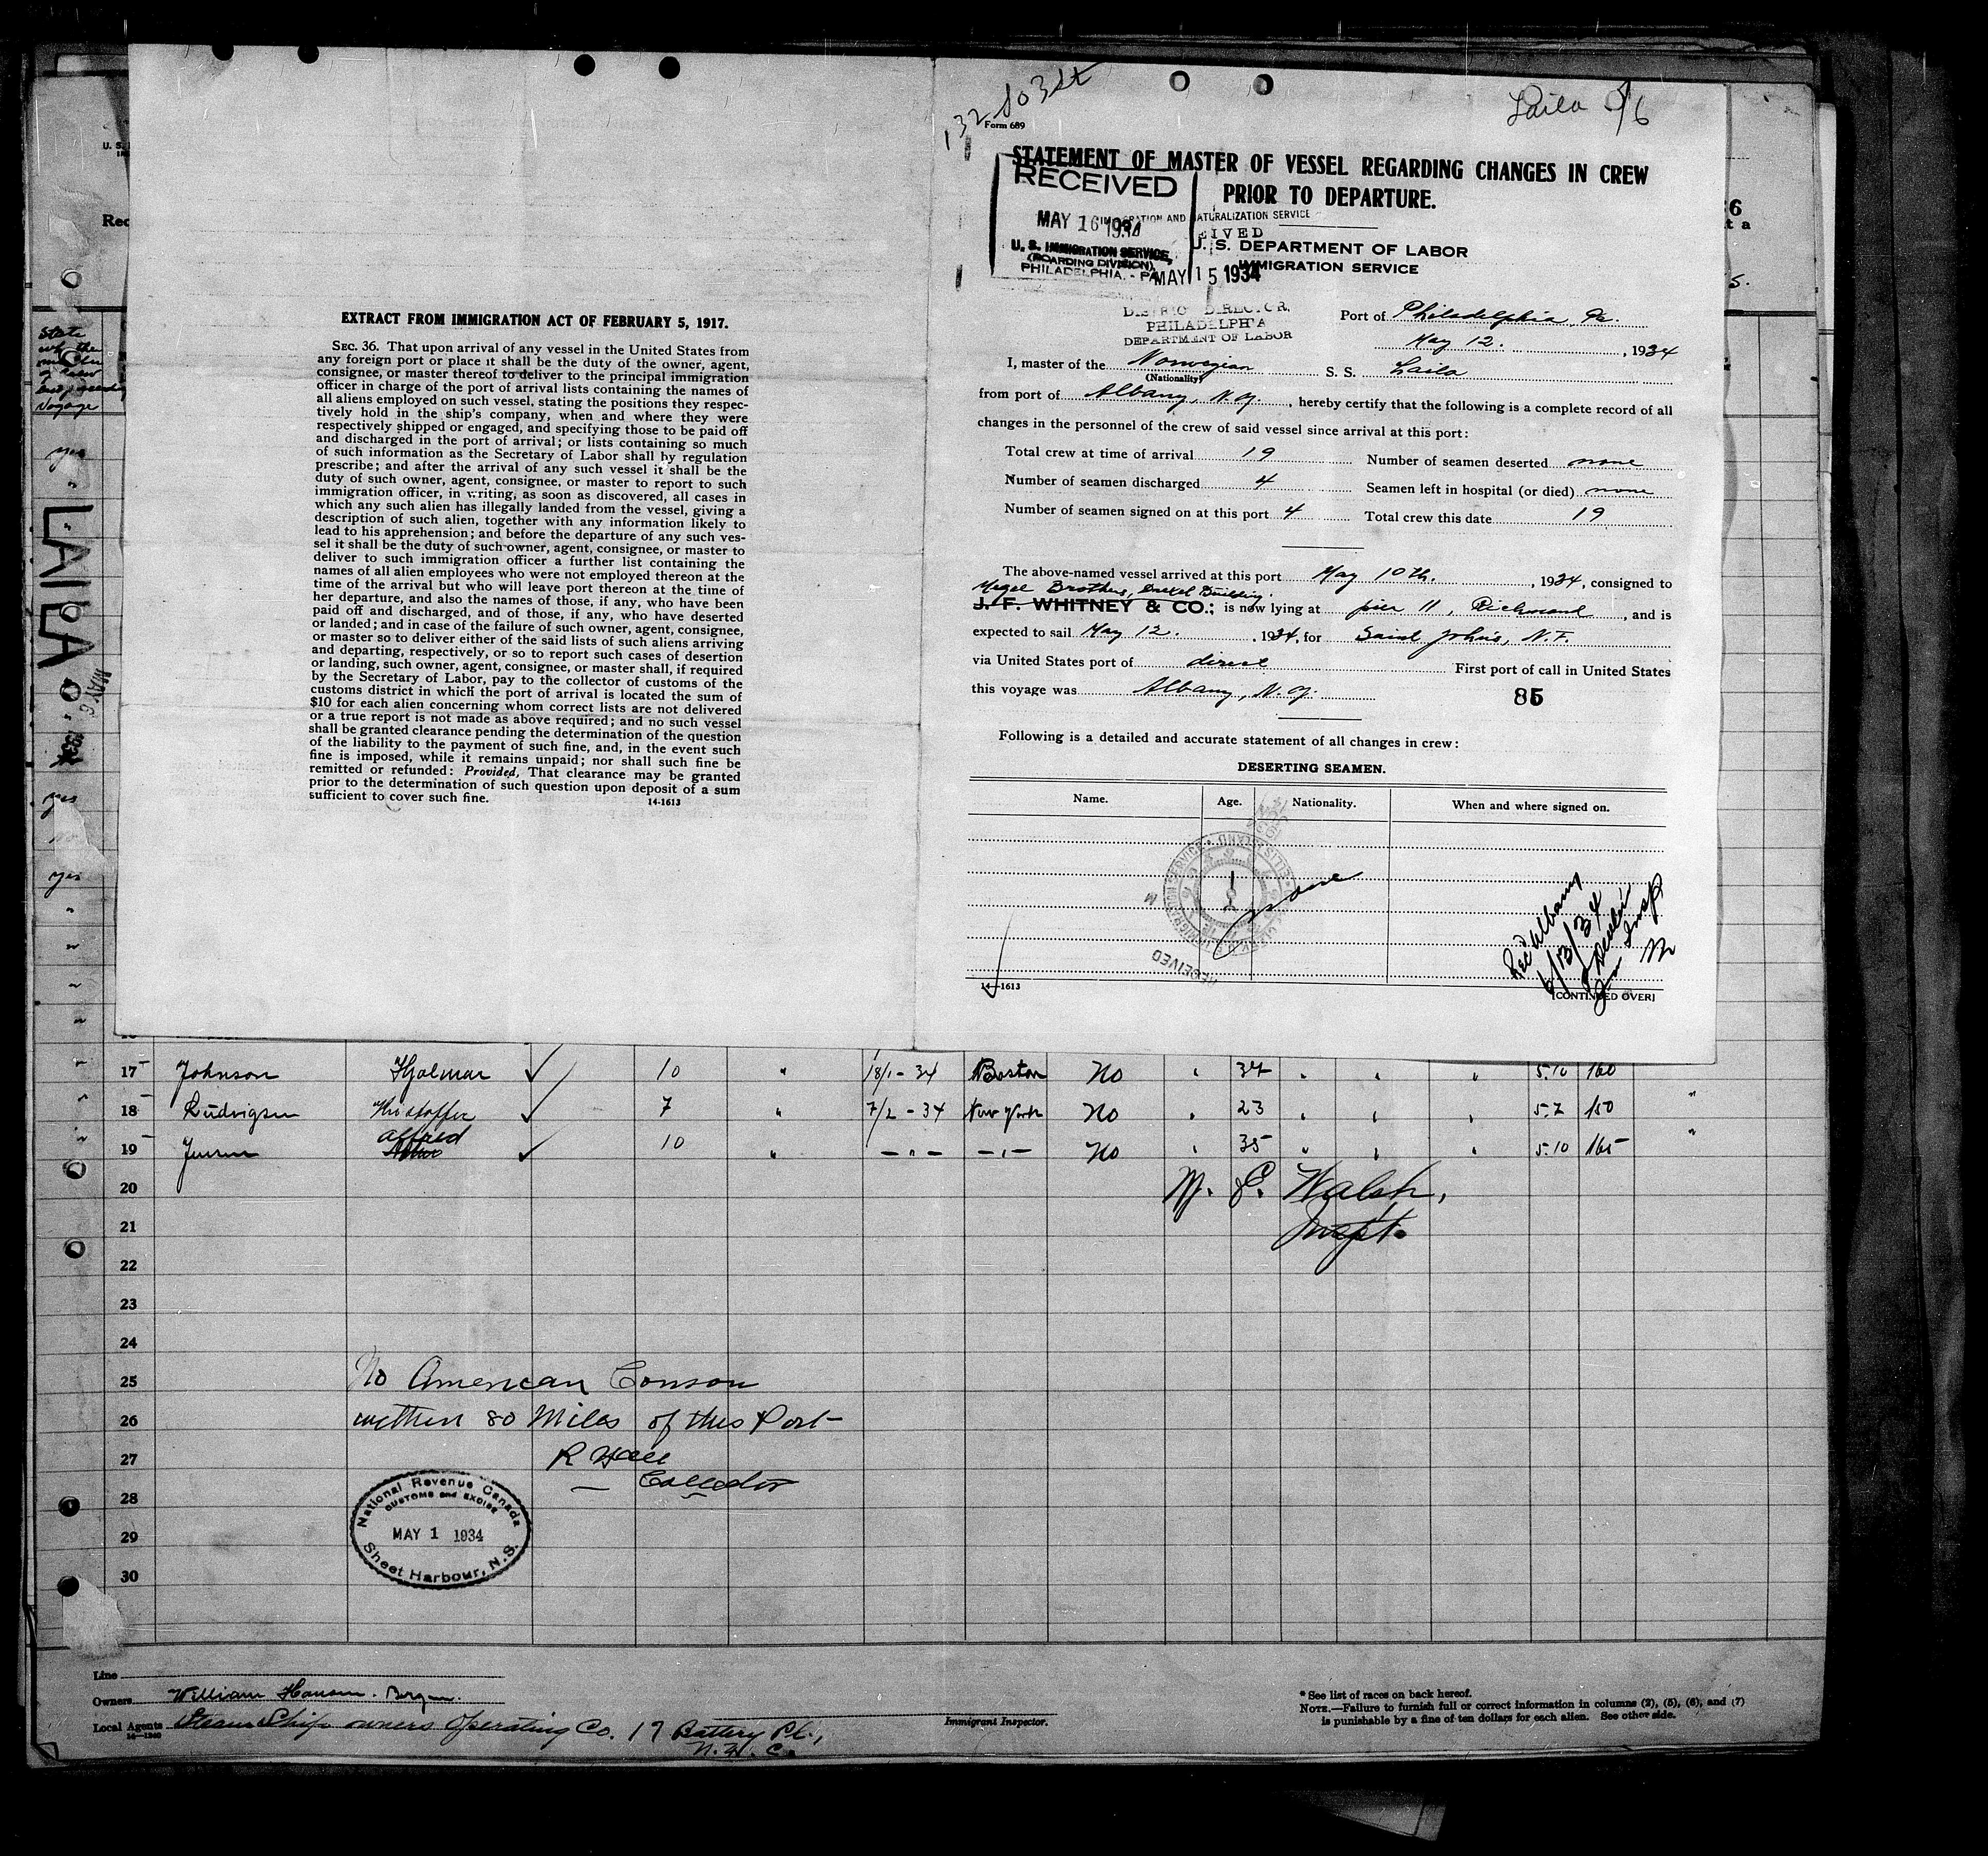 EXTRACT FROM IMMIGRATION ACT OF FEBRUARY 5, 1917.
SEC. 36. That upon arrival of any vessel in the United States from
any foreign port or place it shall be the duty of the owner, agent,
consignee, or master thereof to deliver to the principal immigration
officer in charge of the port of arrival lists containing the names of
all aliens employed on such vessel, stating the positions they respec-
tively hold in the ship's company, when and where they were
respectively shipped or engaged, and specifying those to be paid off
and discharged in the port of arrival; or lists containing so much
of such information as the Secretary of Labor shall by regulation
prescribe; and after the arrival of any such vessel it shall be the
duty of such owner, agent, consignee, or master to report to such
immigration officer, in writing, as soon as discovered, all cases in
which any such alien has illegally landed from the vessel, giving a
description of such alien, together with any information likely to
lead to his apprehension; and before the departure of any such ves-
sel it shall be the duty of such owner, agent, consignee, or master to
deliver to such immigration officer a further list containing the
names of all alien employees who were not employed thereon at the
time of the arrival but who will leave port thereon at the time of
her departure, and also the names of those, if any, who have been
paid off and discharged, and of those, if any, who have deserted
or landed; and in case of the failure of such owner, agent, consignee,
or master so to deliver either of the said lists of such aliens arriving
and departing, respectively, or so to report such cases of desertion
or landing, such owner, agent, consignee, or master shall, if required
by the Secretary of Labor, pay to the collector of customs of the
customs district in which the port of arrival is located the sum of
$10 for each alien concerning whom correct lists are not delivered
or a true report is not made as above required; and no such vessel
shall be granted clearance pending the determination of the question
of the liability to the payment of such fine, and, in the event such
fine is imposed, while it remains unpaid; nor shall such fine be
remitted or refunded: Provided, That clearance may be granted
prior to the determination of such question upon deposit of a sum
sufficient to cover such fine.
14-1613
Form 689
Laila 5/6
STATEMENT OF MASTER OF VESSEL REGARDING CHANGES IN CREW
PRIOR TO DEPARTURE.
RECEIVED
MAY 16 1934
U. S. IMMIGRATION SERVICE,
(BOARDING DIVISION)
PHILADELPHIA, - PA
IMMIGRATION AND NATURALIZATION SERVICE
MAY 15 1934
DISTRICT DIRECTOR,
PHILADELPHIA
DEPARTMENT OF LABOR
U. S. DEPARTMENT OF LABOR
IMMIGRATION SERVICE
Port of Philadelphia, Pa.
May 12. , 1934
I, master of the Norwegian S. S. Laila
(Nationality)
from port of Albany, N.Y. , hereby certify that the following is a complete record of all
changes in the personnel of the crew of said vessel since arrival at this port:
Total crew at time of arrival 19
Number of seamen deserted none
Number of seamen discharged 4
Seamen left in hospital (or died) none
Number of seamen signed on at this port 4
Total crew this date 19
The above-named vessel arrived at this port May 10th. , 1934, consigned to
Brothers, Drexel Building.
J. F. WHITNEY & CO.; is now lying at pier 11, Richmond , and is
expected to sail May 12. , 1934, for Saint John's, N.F.
via United States port of direct First port of call in United States
this voyage was Albany, N.Y.
85
Following is a detailed and accurate statement of all changes in crew:
DESERTING SEAMEN.
Name. Age. Nationality. When and where signed on.
none
RECEIVED
Rec'd Albany
6/13/34
Insp
14-1613
[CONTINUED OVER]
LAILA
17 Johnson Hjalmar 10 " 18/1-34 Boston No " 34 " " " 5.10 160
18 Ludvigsen Kristoffer 7 " 7/2-34 New York No " 23 " " " 5.7 150 "
19 Jensen Alfred 10 " -"- -"- No " 35 " " " 5.10 165 "
20
W. J. Walsh,
Inspt.
21
22
23
24
25 No American Conson
26 within 80 Miles of this Port
27 R Hall
28 Collector
29
30
National Revenue Canada
CUSTOMS and EXCISE
MAY 1 1934
Sheet Harbour, N.S.
Line
Owners William Hansen. Bergen.
Local Agents Steam Ship owners Operating Co. 17 Battery Pl.,
N.Y.C.
Immigrant Inspector.
* See list of races on back hereof.
NOTE.—Failure to furnish full or correct information in columns (2), (5), (6), and (7)
is punishable by a fine of ten dollars for each alien. See other side.